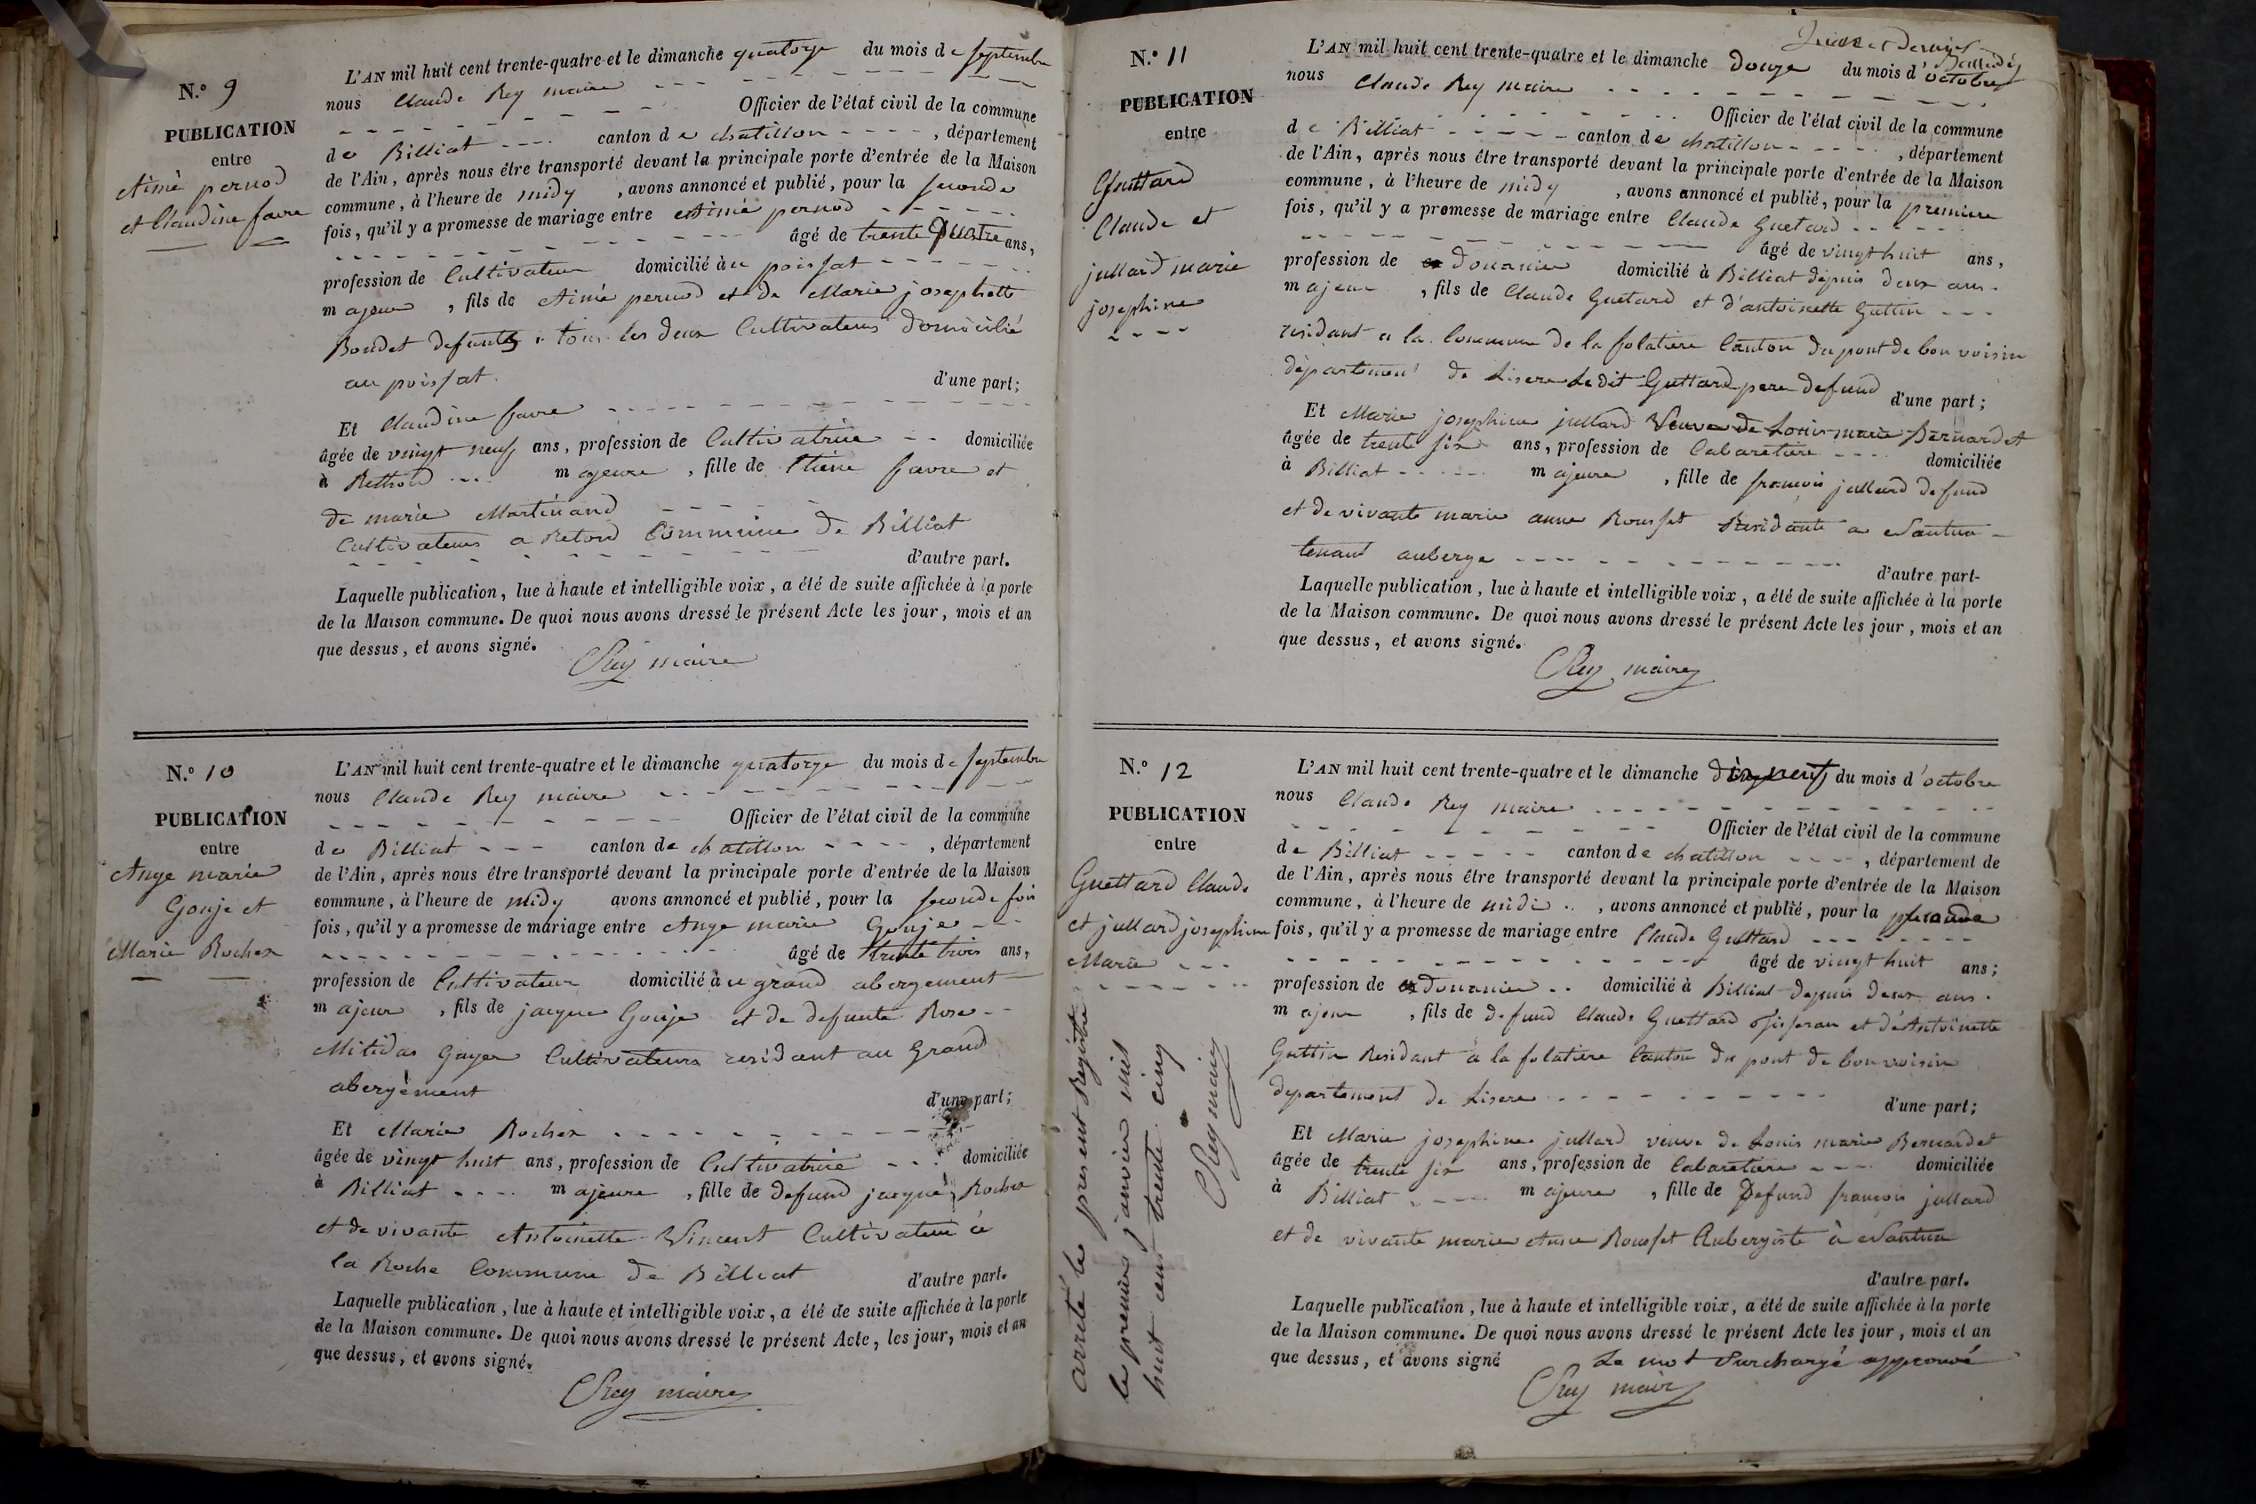 N.º 9
PUBLICATION
entre
Aimé pernod
et Claudine favre
L'AN mil huit cent trente-quatre et le dimanche quatorze du mois de septembre
nous Claude Rey maire
Officier de l'état civil de la commune
de Billiat canton de chatillon , département
de l'Ain, après nous être transporté devant la principale porte d'entrée de la Maison
commune, à l'heure de midy , avons annoncé et publié, pour la seconde
fois, qu'il y a promesse de mariage entre Aimé pernod
âgé de trente Quatre ans,
profession de Cultivateur domicilié àu poissat
majeur , fils de Aimé pernod et de Marie josephette
Bondet defunts tous les deux Cultivateurs domicilié
au poissat. d'une part;
Et Claudine favre
âgée de vingt neuf ans, profession de Cultivatrice domiciliée
à Rethord majeure , fille de favre et
de marie Martinand
Cultivateurs a Retord Commune de Billiat
d'autre part.
Laquelle publication, lue à haute et intelligible voix, a été de suite affichée à la porte
de la Maison commune. De quoi nous avons dressé le présent Acte les jour, mois et an
que dessus, et avons signé.
CRey maire
N.º 10
PUBLICATION
entre
Ange marie
Gouje et
Marie Rochex
L'AN mil huit cent trente-quatre et le dimanche quatorze du mois de septembre
nous Claude Rey maire
Officier de l'état civil de la commune
de Billiat canton de chatillon , département
de l'Ain, après nous être transporté devant la principale porte d'entrée de la Maison
commune, à l'heure de midy avons annoncé et publié, pour la seconde fois
fois, qu'il y a promesse de mariage entre Ange marie Gouje
âgé de trente trois ans,
profession de Cultivateur domicilié àu grand abergement
majeur , fils de jacque Gouje et de defunte Rose
Cultivateurs residant au Grand
abergement
d'une part;
Et Marie Rochex
âgée de vingt huit ans, profession de Cultivatrice domiciliée
à Billiat majeure , fille de defund jacque Rochex
et de vivante Antoinette Vincent Cultivateur à
la Roche Commune de Billiat d'autre part.
Laquelle publication, lue à haute et intelligible voix, a été de suite affichée à la porte
de la Maison commune. De quoi nous avons dressé le présent Acte, les jour, mois et an
que dessus, et avons signé.
CRey maire
N.º 11
PUBLICATION
entre
Guettard
Claude et
jullard marie
josephine
L'AN mil huit cent trente-quatre et le dimanche douze du mois d'octobre
nous Claude Rey maire
Officier de l'état civil de la commune
de Billiat canton de chatillon , département
de l'Ain, après nous être transporté devant la principale porte d'entrée de la Maison
commune, à l'heure de midy , avons annoncé et publié, pour la premiere
fois, qu'il y a promesse de mariage entre Claude Guetard
âgé de vingt huit ans,
profession de douanier domicilié à Billiat depuis deux ans.
majeur , fils de Claude Guetard et d'antoinette Guttin
residant a la Commune de la folatiere Canton du pont de bon voisin
département de Lisere Ledit Guettard pere defund d'une part;
Et Marie josephine jullard Veuve de Louis marie Bernardet
âgée de trente six ans, profession de Cabaretiere domiciliée
à Billiat majeure , fille de françois jullard defund
et de vivante marie anne Rousset Residante a Nantua
tenant auberge
d'autre part-
Laquelle publication, lue à haute et intelligible voix, a été de suite affichée à la porte
de la Maison commune. De quoi nous avons dressé le présent Acte les jour, mois et an
que dessus, et avons signé.
CRey maire
N.º 12
PUBLICATION
entre
Guettard Claude
et jullard josephine
Marie
L'AN mil huit cent trente-quatre et le dimanche dix neuf du mois d'octobre
nous Claude Rey maire
Officier de l'état civil de la commune
de Billiat canton de chatillon , département de
de l'Ain, après nous être transporté devant la principale porte d'entrée de la Maison
commune, à l'heure de midi , avons annoncé et publié, pour la seconde
fois, qu'il y a promesse de mariage entre Claude Guettard
âgé de vingt huit ans;
profession de douanier domicilié à Billiat depuis deux ans.
majeur , fils de defund Claude Guettard et d'Antoinette
Guttin Residant à la folatiere Canton du pont de bonvoisin
departement de Lisere
d'une part;
Et Marie josephine jullard veuve de Louis marie Bernardet
âgée de trente six ans, profession de Cabaretiere domiciliée
à Billiat majeure , fille de Defund françois jullard
et de vivante marie Anne Rousset Aubergiste à Nantua
d'autre part.
Laquelle publication, lue à haute et intelligible voix, a été de suite affichée à la porte
de la Maison commune. De quoi nous avons dressé le présent Acte les jour, mois et an
que dessus, et avons signé Le mot Surchargé approuvé
CRey maire
arrêté le present Registre
le premier janvier mil
huit cent trente cinq
CRey maire